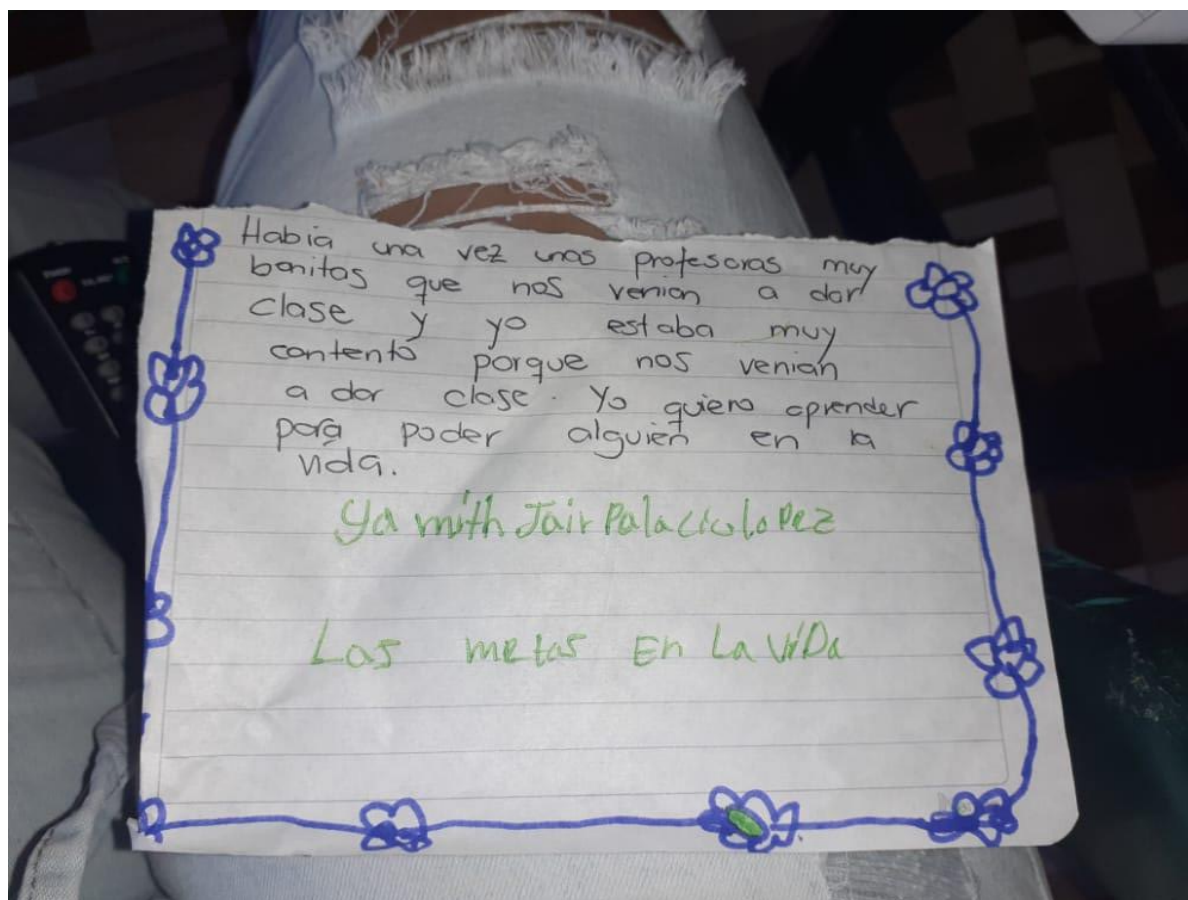 Habia una vez unas profesoras muy
bonitas que nos venian a dar
clase y yo estaba muy
contento porque nos venian
a dar clase. Yo quiero aprender
para poder alguien en la
vida.
Yamith Jair Palacio Lopez
Las metas En La ViDa